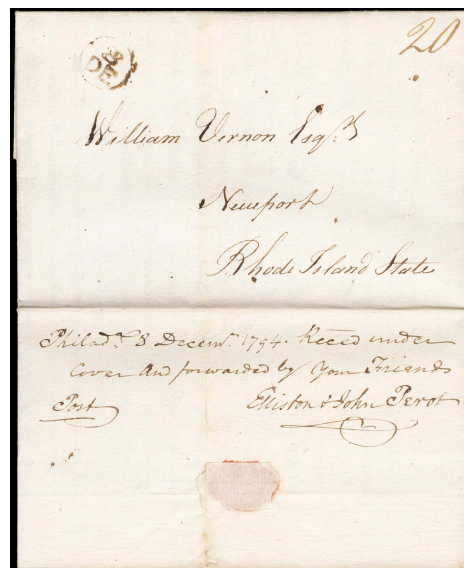 20
8
DE
William Vernon Esqr.
Newport
Rhode Island State
Philada. 8 Decemr. 1794. Receed under
Cover And forwarded by Your Friends
Post
Elliston & John Perot